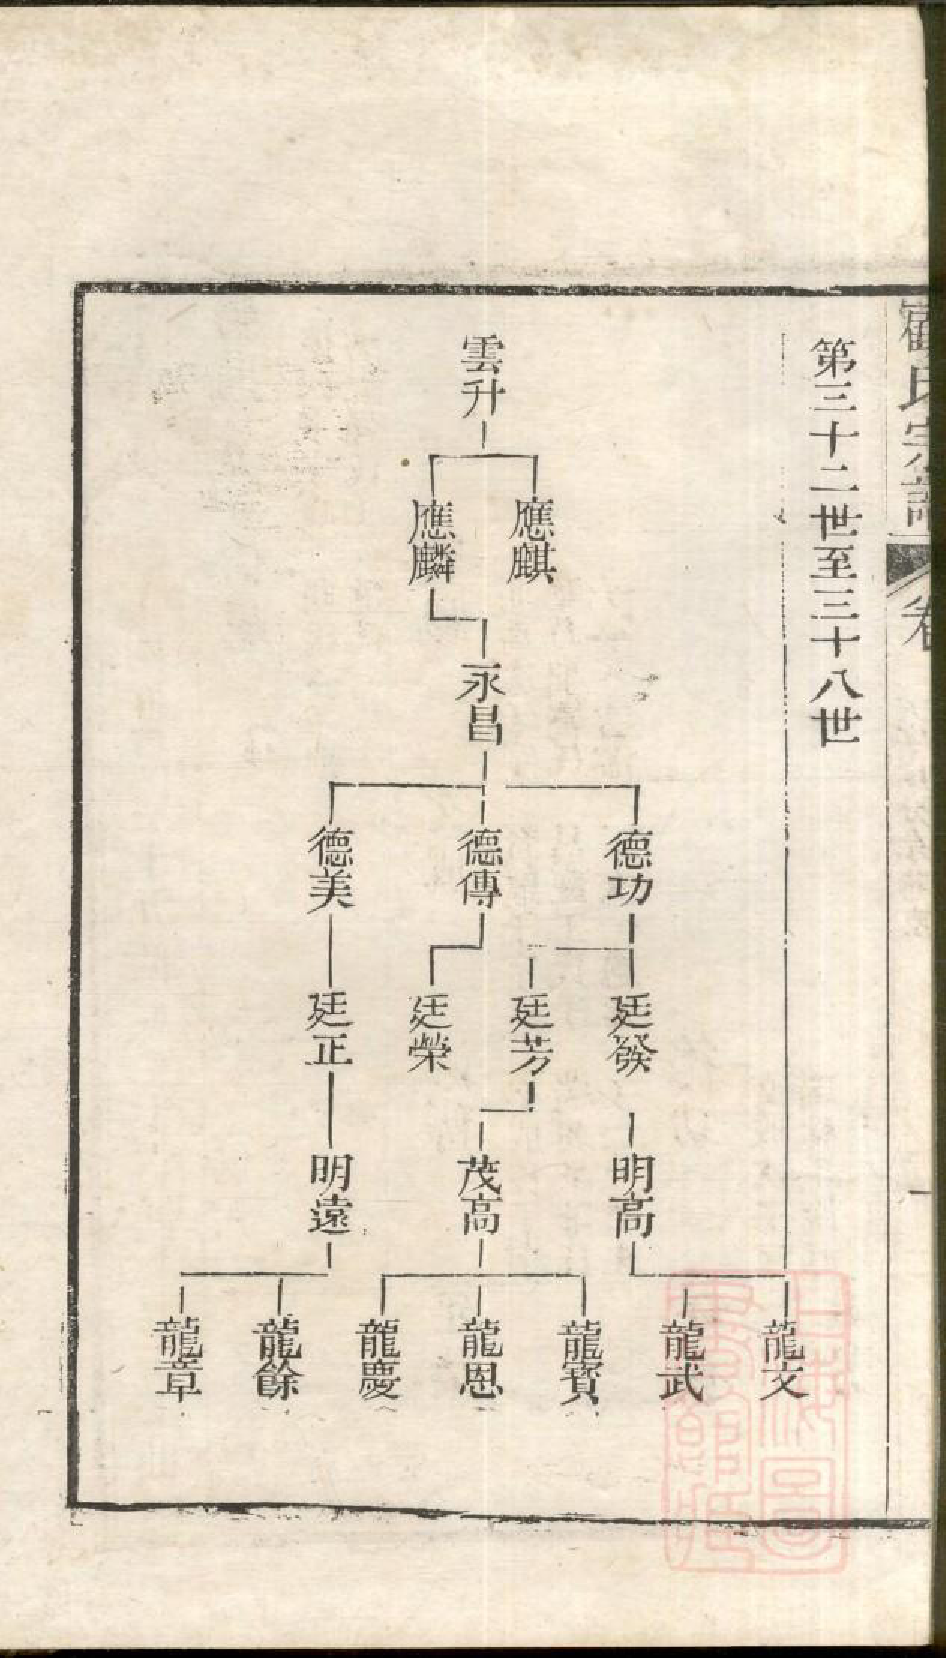 氏宗譜
卷
第三十二世至三十八世
雲升
應麒
應麟
永昌
德功
德傳
德美
廷發
廷芳
廷榮
廷正
明高
茂高
明遠
龍文
龍武
龍寶
龍恩
龍慶
龍餘
龍章
上海圖書館藏